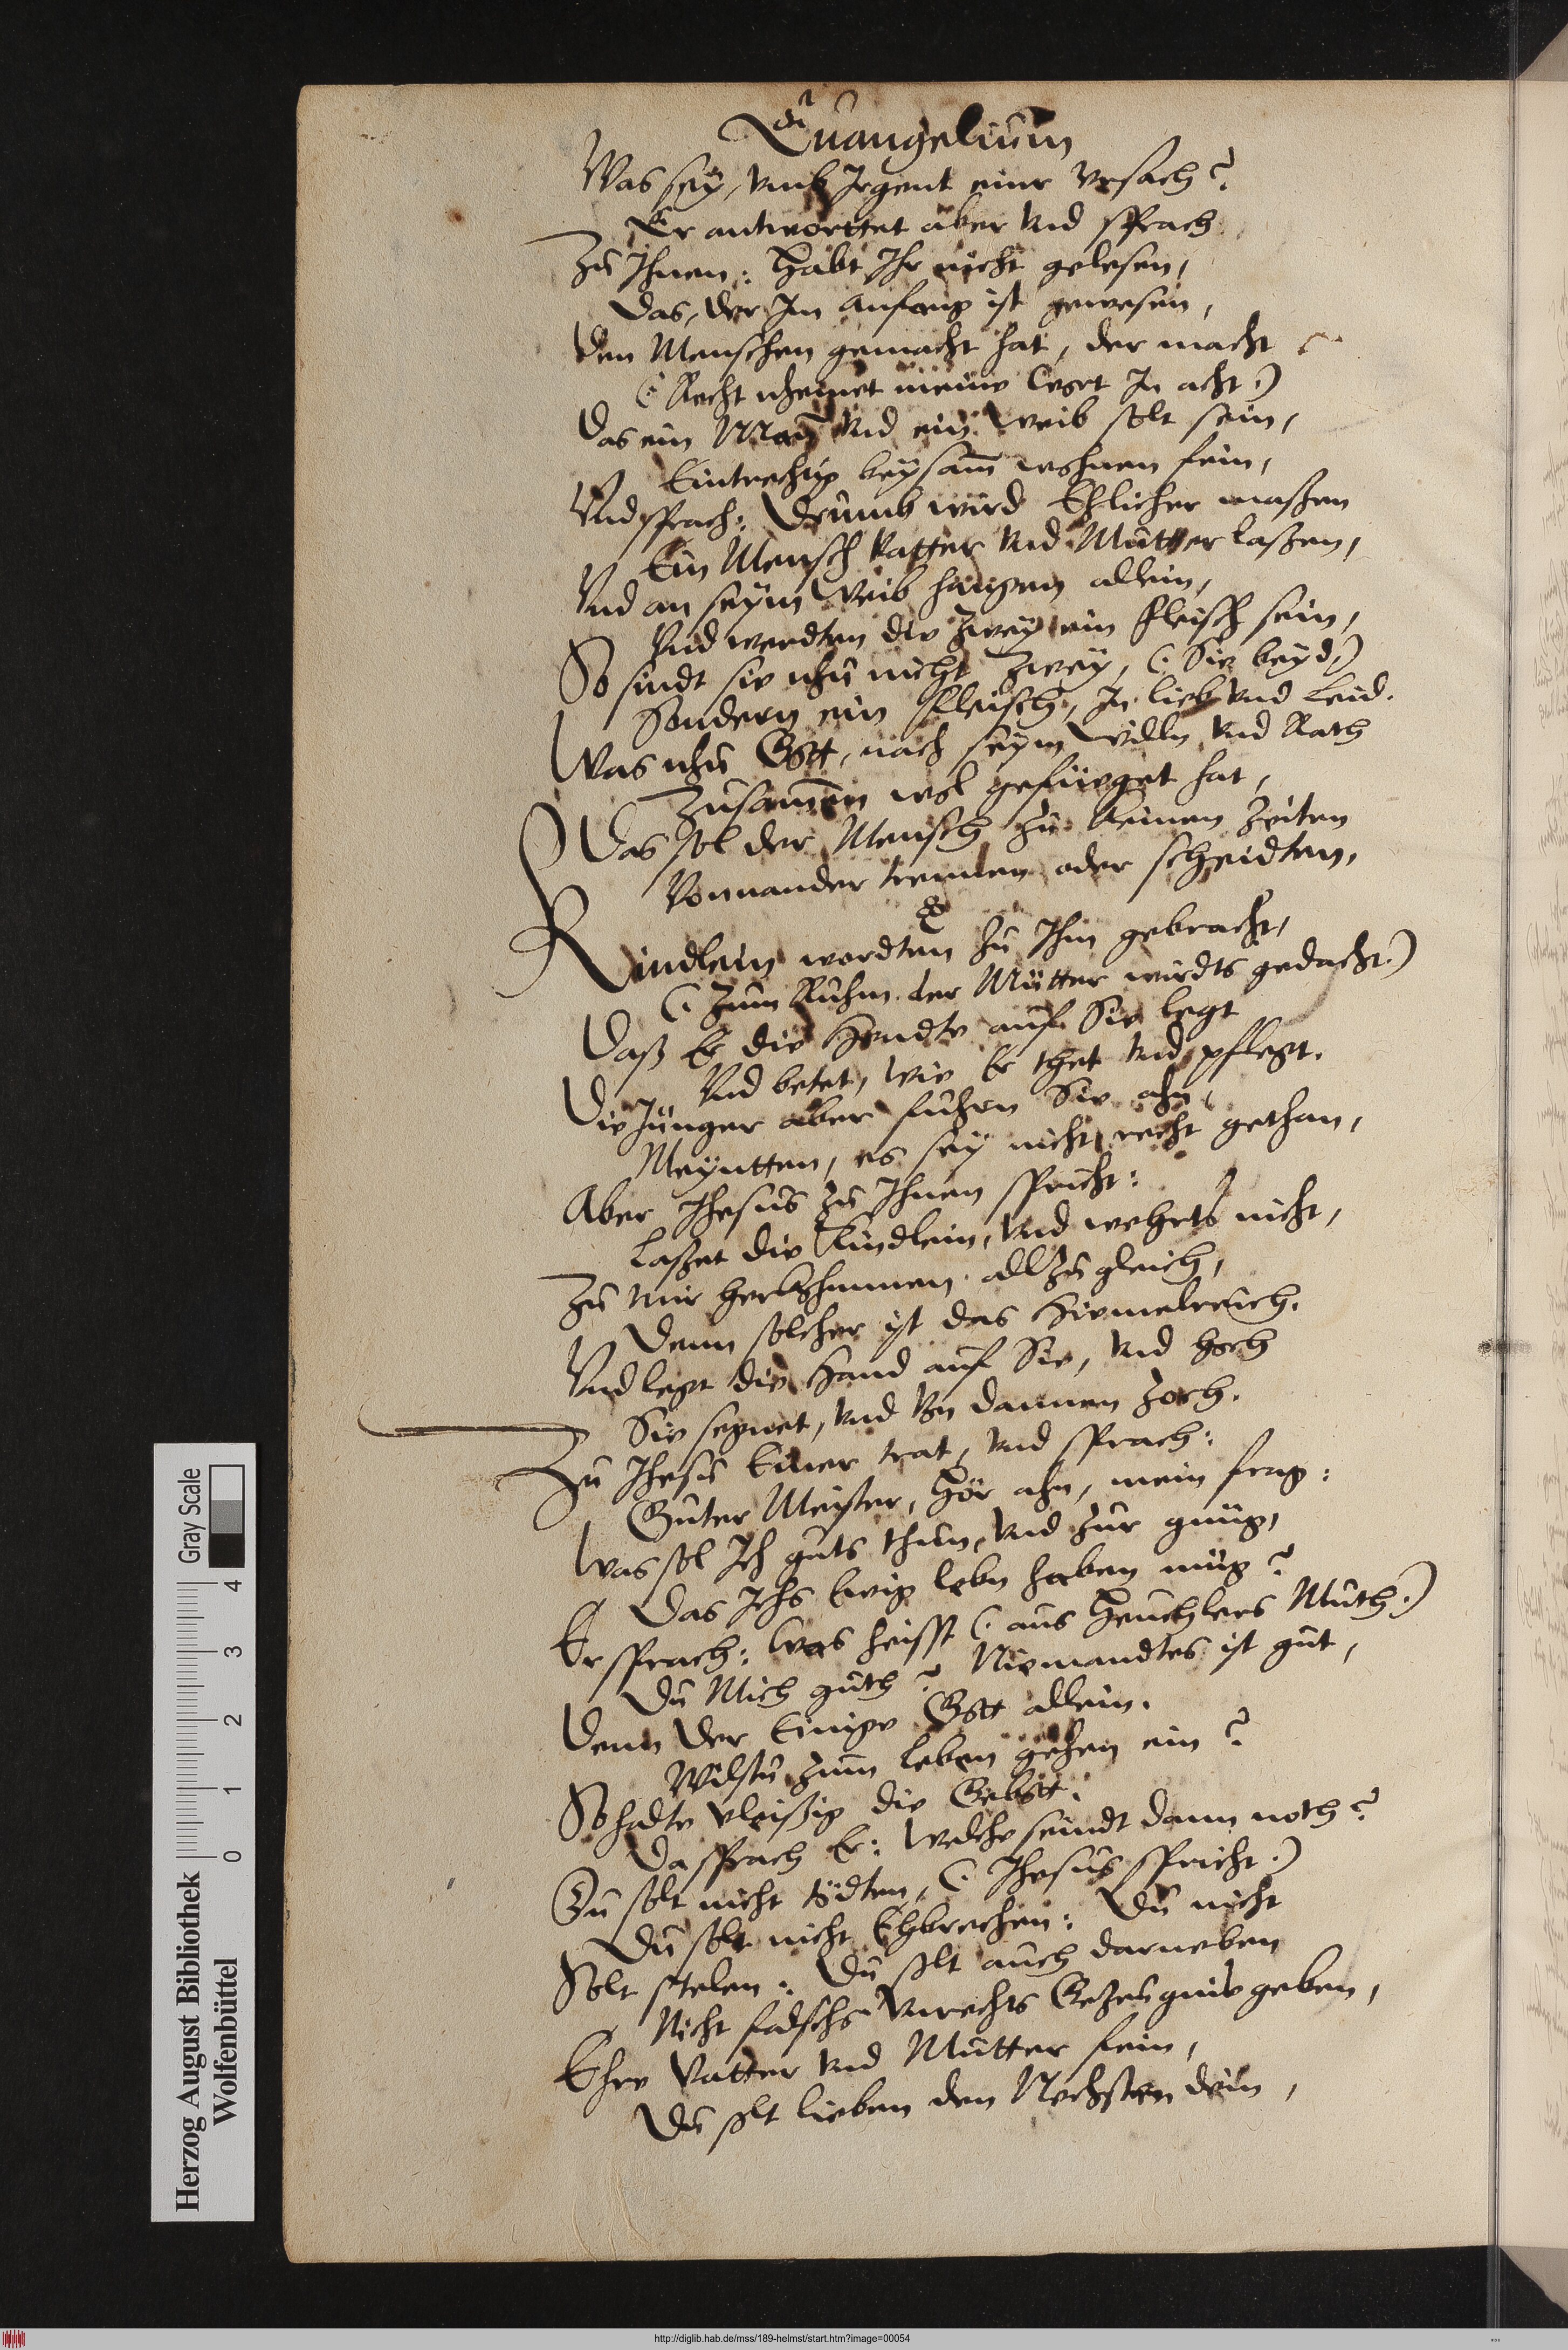 Euangelium
Was sey, vmb Jrgent einr Vrsach?
Er antworttet aber vnd sprach
Zu Jhnen: Habt Jhr nicht gelesen,
Das, der Jm anfang ist gewesen,
Den Menschen gemacht hat, der macht
(: Recht nhemet meine Wort Jn acht :)
Das ein Man vnd ein Weib solt sein,
Eintrechtig beysam wohnen fein,
Vnd sprach: Drumb wird Ehlicher maßen
Ein Mensch Vatter vnd Mutter laßen,
Vnd an seym Weib hangen allein,
Vnd werdten die Zwey ein fleisch sein,
So sindt sie nhu nicht Zwey, (: Sie beyd :)
Sondern ein fleisch, Jn lieb vnd Leid.
Was nhu Gott, nach seym Willn vnd Rath
Zusamen wol gefueget hat,
Das sol der Mensch Zu keinen Zeiten
Vonnander trennen oder scheidten,
Kindlein wordten Zu Jhm gebracht,
(: Zum Ruhm der Mütter wirdts gedacht :)
Daß Er die Hendte auf Sie legt
Vnd betet, wie Er thet vnd pflegt.
Die Jünger aber fuhrn Sie ahn,
Meyntten, es sey nicht recht gethan,
Aber Jhesus Zu Jhnen spricht:
Laßet die Kindlein, vnd wehrts nicht,
Zu mir herkhommen all Zu gleich,
Denn solcher ist das Hiemelreich.
Vnd legt die Hand auf Sie, vnd hoch
Sie segnet, vnd Von dannen Zoch.
Zu Jhesu Einer trat, vnd sprach:
Guter Meister, Hör ahn, mein frag:
Was sol Jch guts thun, vnd Zur gnüg,
Das Jchs Ewig lebn haben müg?
Er sprach: Was heisst (: aus Heuchlers Muth :)
Du Mich guth? Niemandtes ist gut,
Denn der Einige Gott allein.
Wilstu Zum leben gehen ein?
So halte vleißig die Gebott.
Da sprach Er: Welche seindt dann noth?
Du solt nicht tödten, (: Jhesus spricht :)
Du solt nicht Ehbrechen: Du nicht
Solt stelen: Du solt auch darneben
Nicht falschs Vnrechts Gezeugnis geben,
Ehre Vatter vnd Mutter fein,
Du solt lieben den Nechsten dein,
Herzog August Bibliothek
Wolfenbüttel
Gray Scale
0 1 2 3 4
http://diglib.hab.de/mss/189-helmst/start.htm?image=00054